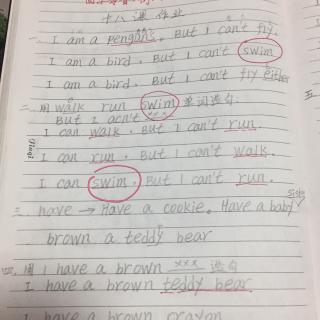 十八课 作业
一、I am a pengins. But I can't fly.
I am a bird. But I can't swim
I am a bird. But I can't fly either
二、用 walk run swim 单词造句.
But I acn't
I can walk. But I can't run.
I can run. But I can't walk.
I can swim. But I can't run.
三、have → Have a cookie. Have a baby
brown a teddy bear
四、用 I have a brown xxx 造句
I have a brown teddy bear
I have a brown crayon
五